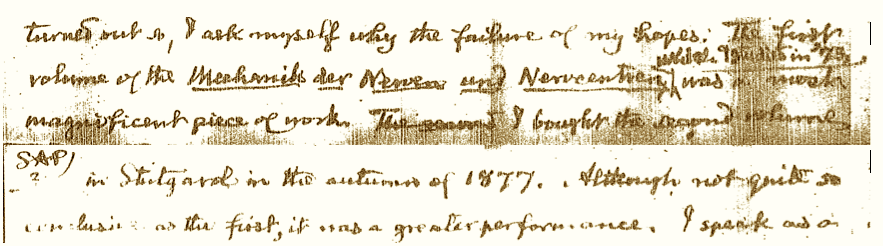 turned out so, I ask myself why the failure of my hopes. The first
volume of the Mechanik der Nerven und Nervencentren, was a most
magnificent piece of work. The second I bought the second volume
SAP)
2
in Stuttgard in the autumn of 1877. Although not quite so
conclusive as the first, it was a greater performance. I speak as a